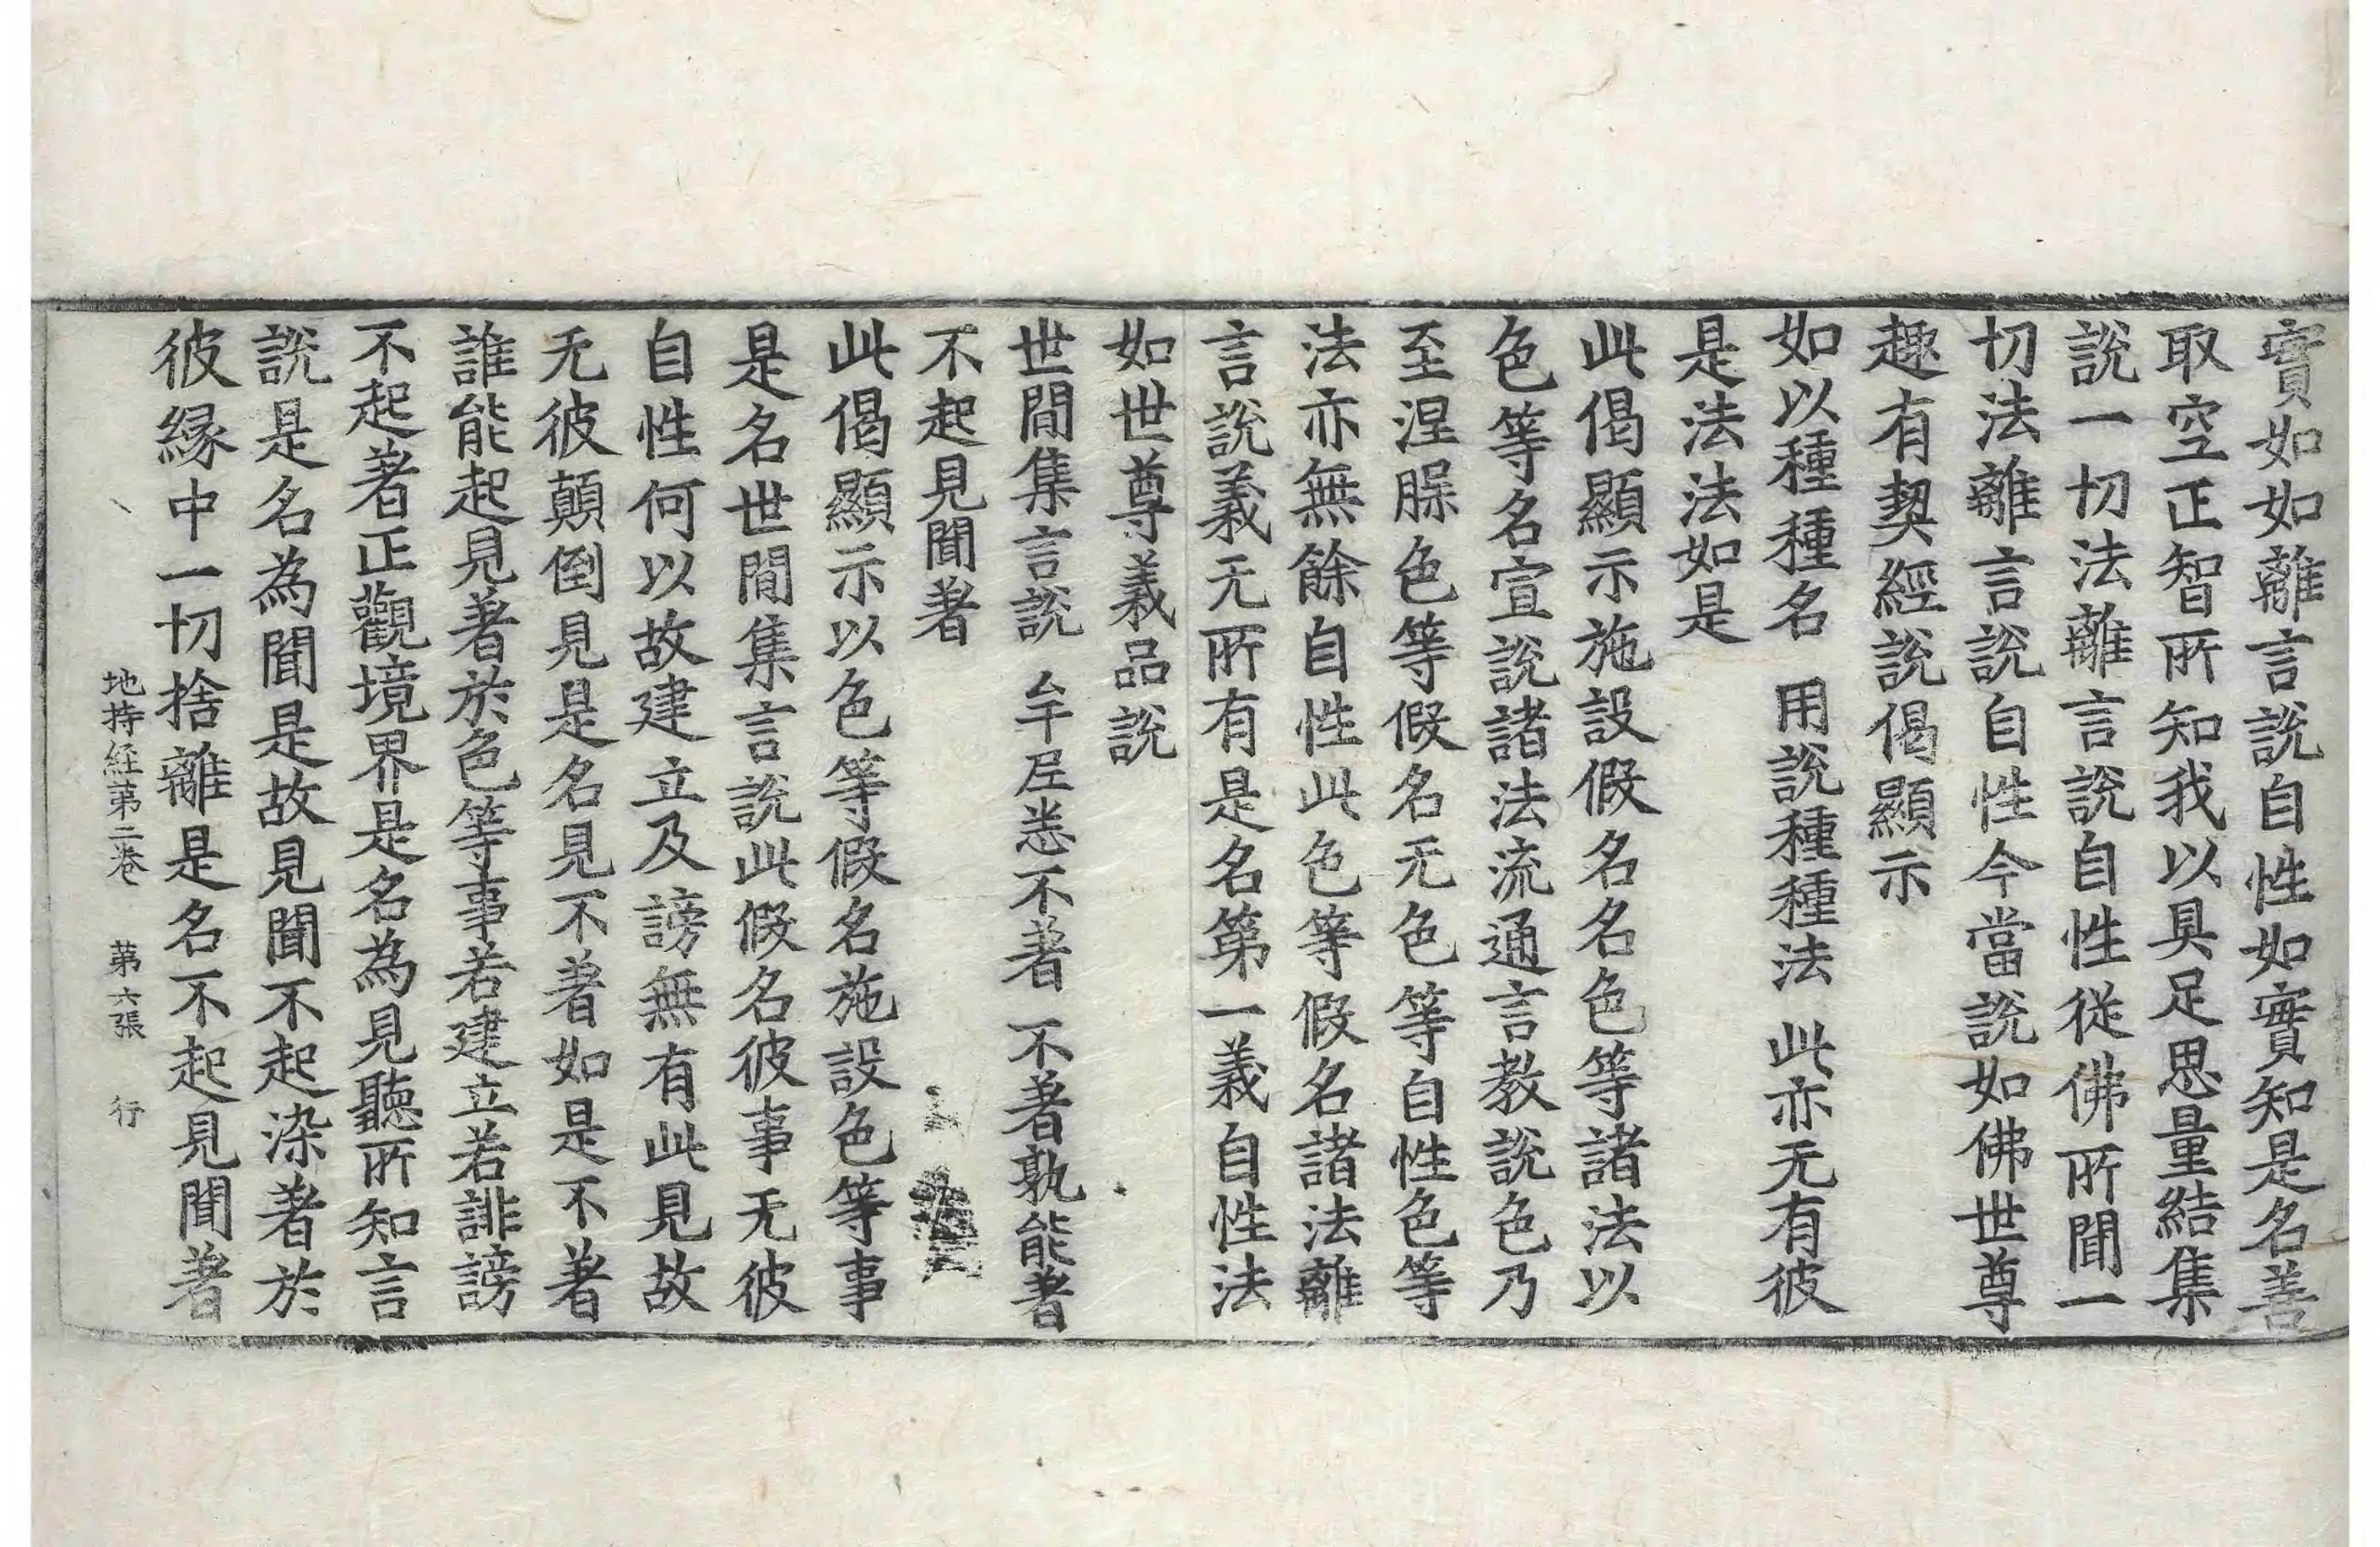 實如如離言說自性如實知是名善
取空正智所知我以具足思量結集
說一切法離言說自性從佛所聞一
切法離言說自性今當說如佛世尊
趣有契經說偈顯示
如以種種名　用說種種法　此亦无有彼
是法法如是
此偈顯示施設假名名色等諸法以
色等名宣說諸法流通言教說色乃
至涅𣵀色等假名无色等自性色等
法亦無餘自性此色等假名諸法離
言說義无所有是名第一義自性法
如世尊義品說
世間集言說　牟𡰱悉不著　不著孰能著
不起見聞著
此偈顯示以色等假名施設色等事
是名世間集言說此假名彼事无彼
自性何以故建立及謗無有此見故
无彼顛倒見是名見不著如是不著
誰能起見著於色等事若建立若誹謗
不起著正觀境界是名為見聽所知言
說是名為聞是故見聞不起染著於
彼緣中一切捨離是名不起見聞著
地持経苐二卷　苐六張　行